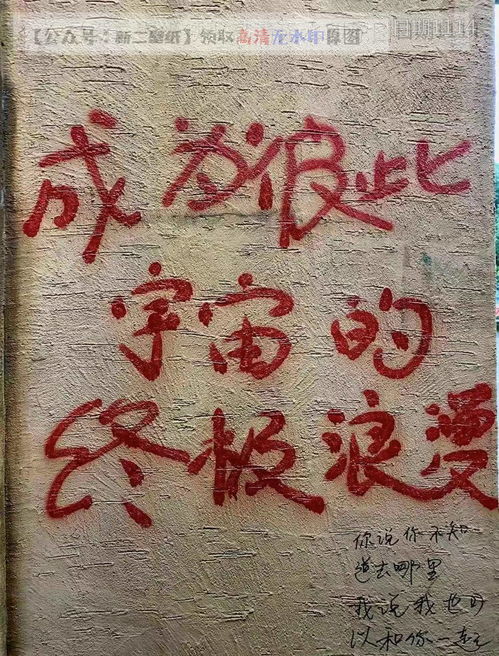 【公众号：新二壁纸】领取高清无水印原图
成为彼此
宇宙的
终极浪漫
你说你不知
道去哪里
我说我也可
以和你一起